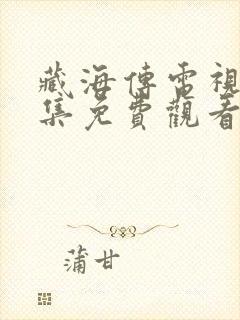 藏海傳電視
集免費觀看
蒲甘